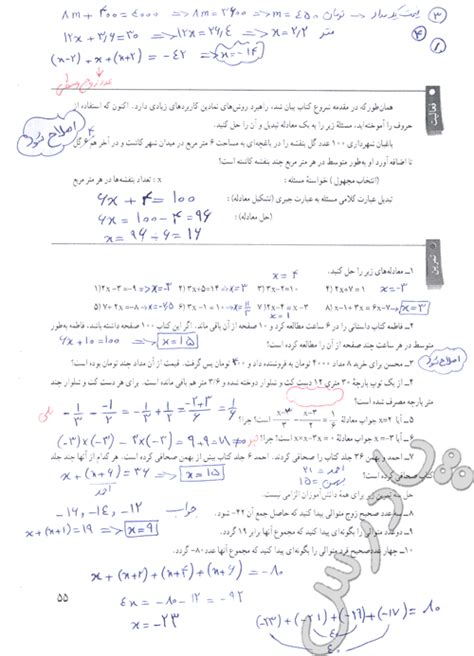 ۳ قیمت یک مداد ← تومان 8m + 400 = 4000 => 8m = 3600 => m = 450
۴ متر 12x + 3/6 = 30 => 12x = 26/4 => x = 2/2
۸ (x-2) + x + (x+2) = -42 => x = -14
فعالیت
همان‌طور که در مقدمه شروع کتاب بیان شد، راهبرد روش‌های نمادین کاربردهای زیادی دارد. اکنون که استفاده از
حروف را آموخته‌اید، مسئلهٔ زیر را به یک معادله تبدیل و آن را حل کنید.
اصلاح شود
باغبان شهرداری ۱۰۰ عدد گل بنفشه را در باغچه‌ای به مساحت ۶ متر مربع در میدان شهر کاشت و در آخر هم ۶ گل
۴
تا اضافه آورد او به‌طور متوسط در هر متر مربع چند بنفشه کاشته است؟
x : تعداد بنفشه‌ها در هر متر مربع (انتخاب مجهول) خواستهٔ مسئله :
تبدیل عبارت کلامی مسئله به عبارت جبری (تشکیل معادله) : 6x + 4 = 100
(حل معادله) : 6x = 100 - 4 = 96
x = 96 ÷ 6 = 16
تمرین
۱ـ معادله‌های زیر را حل کنید. x = 4
۱) ۲x-۳=-۹ => x=-3 ۲) ۳x+۵=۱۴ => x=3 ۳) ۳x-۲=۱۰ ۴) ۲x+۷=۱ x=-3
۵) ۷+۲x=-۸ => x=-7,5 ۶) ۳x-۱=۱۰ => x=11/3 ۷) ۲x-۴=x-۳ x=1 ۸) x-۱+۳x=۶x-۷ => x=3
۲ـ فاطمه کتاب داستانی را در ۶ ساعت مطالعه کرد و ۱۰ صفحه از آن باقی ماند. اگر این کتاب ۱۰۰ صفحه داشته باشد، فاطمه به‌طور
متوسط در هر ساعت چند صفحه از آن را مطالعه کرده است؟ 6x + 10 = 100 x = 15
اصلاح شود
۳ـ محسن برای خرید ۸ مداد ۴۰۰۰ تومان به فروشنده داد و ۴۰۰ تومان پس گرفت. قیمت هر مداد چند تومان بوده است؟
۴ـ از یک توپ پارچهٔ ۳۰ متری ۱۲ دست کت و شلوار دوخته شده و ۳/۶ متر هم باقی مانده است. برای هر دست کت و شلوار چند
متر پارچه مصرف شده است؟
۵ـ آیا x=۲ جواب معادلهٔ است؟ چرا؟
۶ـ آیا x=-۳ جواب معادلهٔ است؟ چرا؟
(-3)×(-3) - 3 = 9 + 9 = 18 ≠ 0
۷ـ احمد و بهمن ۳۶ جلد کتاب را صحافی کردند. احمد ۶ جلد کتاب بیش از بهمن صحافی کرده است. هر کدام از آنها چند جلد
کتاب صحافی کرده است؟ x + (x+6) = 36 => x = 15
احمد = 21
بهمن = 15
احمد
حل سه تمرین زیر برای همهٔ دانش‌آموزان الزامی نیست.
۸ـ سه عدد صحیح زوج متوالی پیدا کنید که حاصل جمع آن ۴۲- شود. جواب -16, -14, -12
۹ـ دو عدد متوالی را بگونه‌ای پیدا کنید که مجموع آنها برابر ۱۹ گردد. x + (x+1) = 19 => x = 9
۱۰ـ چهار عدد صحیح فرد متوالی را بگونه‌ای پیدا کنید که مجموع آنها عدد ۸۰- گردد.
x + (x+2) + (x+4) + (x+6) = -80
4x = -80 - 12 = -92
x = -23
(-23) + (-21) + (-19) + (-17) = 80
40
40
۵۵
پادرس